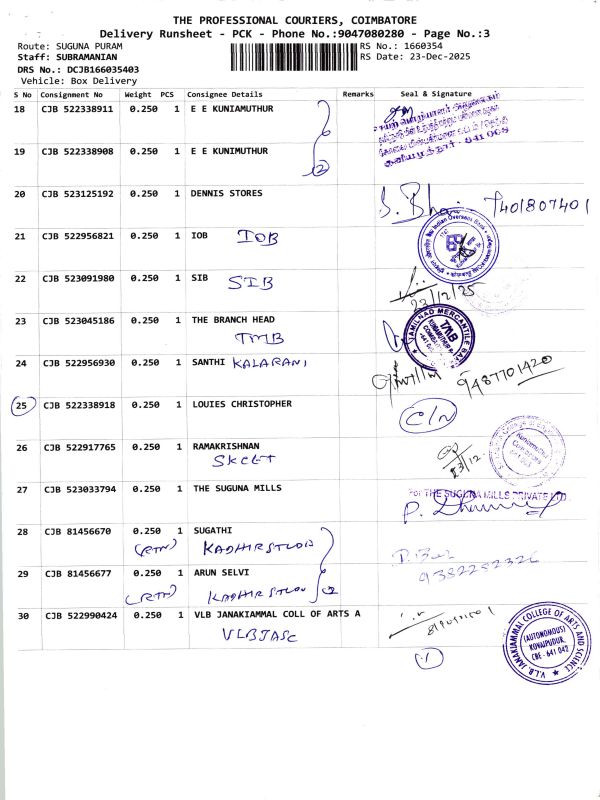 THE PROFESSIONAL COURIERS, COIMBATORE
Delivery Runsheet - PCK - Phone No.:9047080280 - Page No.:3
Route: SUGUNA PURAM RS No.: 1660354
Staff: SUBRAMANIAN RS Date: 23-Dec-2025
DRS No.: DCJB166035403
Vehicle: Box Delivery
S No Consignment No Weight PCS Consignee Details Remarks Seal & Signature
18 CJB 522338911 0.250 1 E E KUNIAMUTHUR
19 CJB 522338908 0.250 1 E E KUNIMUTHUR
2
641 008
20 CJB 523125192 0.250 1 DENNIS STORES
7401807401
21 CJB 522956821 0.250 1 IOB IOB
Indian Overseas Bank
22 CJB 523091980 0.250 1 SIB SIB
23/12/25
23 CJB 523045186 0.250 1 THE BRANCH HEAD
TMB
TAMILNAD MERCANTILE BANK
TMB
24 CJB 522956930 0.250 1 SANTHI KALARANI
9487701420
25 CJB 522338918 0.250 1 LOUIES CHRISTOPHER
C/N
26 CJB 522917765 0.250 1 RAMAKRISHNAN
SKCET
23/12.
27 CJB 523033794 0.250 1 THE SUGUNA MILLS
For THE SUGUNA MILLS PRIVATE LTD.
28 CJB 81456670 0.250 1 SUGATHI
(RTN)
29 CJB 81456677 0.250 1 ARUN SELVI
(RTN)
2
30 CJB 522990424 0.250 1 VLB JANAKIAMMAL COLL OF ARTS A
VLBJASC
V.L.B. JANAKIAMMAL COLLEGE OF ARTS AND SCIENCE
(AUTONOMOUS)
KOVAIPUDUR,
CBE - 641 042